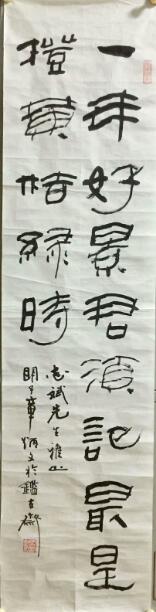 一年好景君須記最是
橙黃桔綠時
斌先生雅正
章炳文於鑑古齋